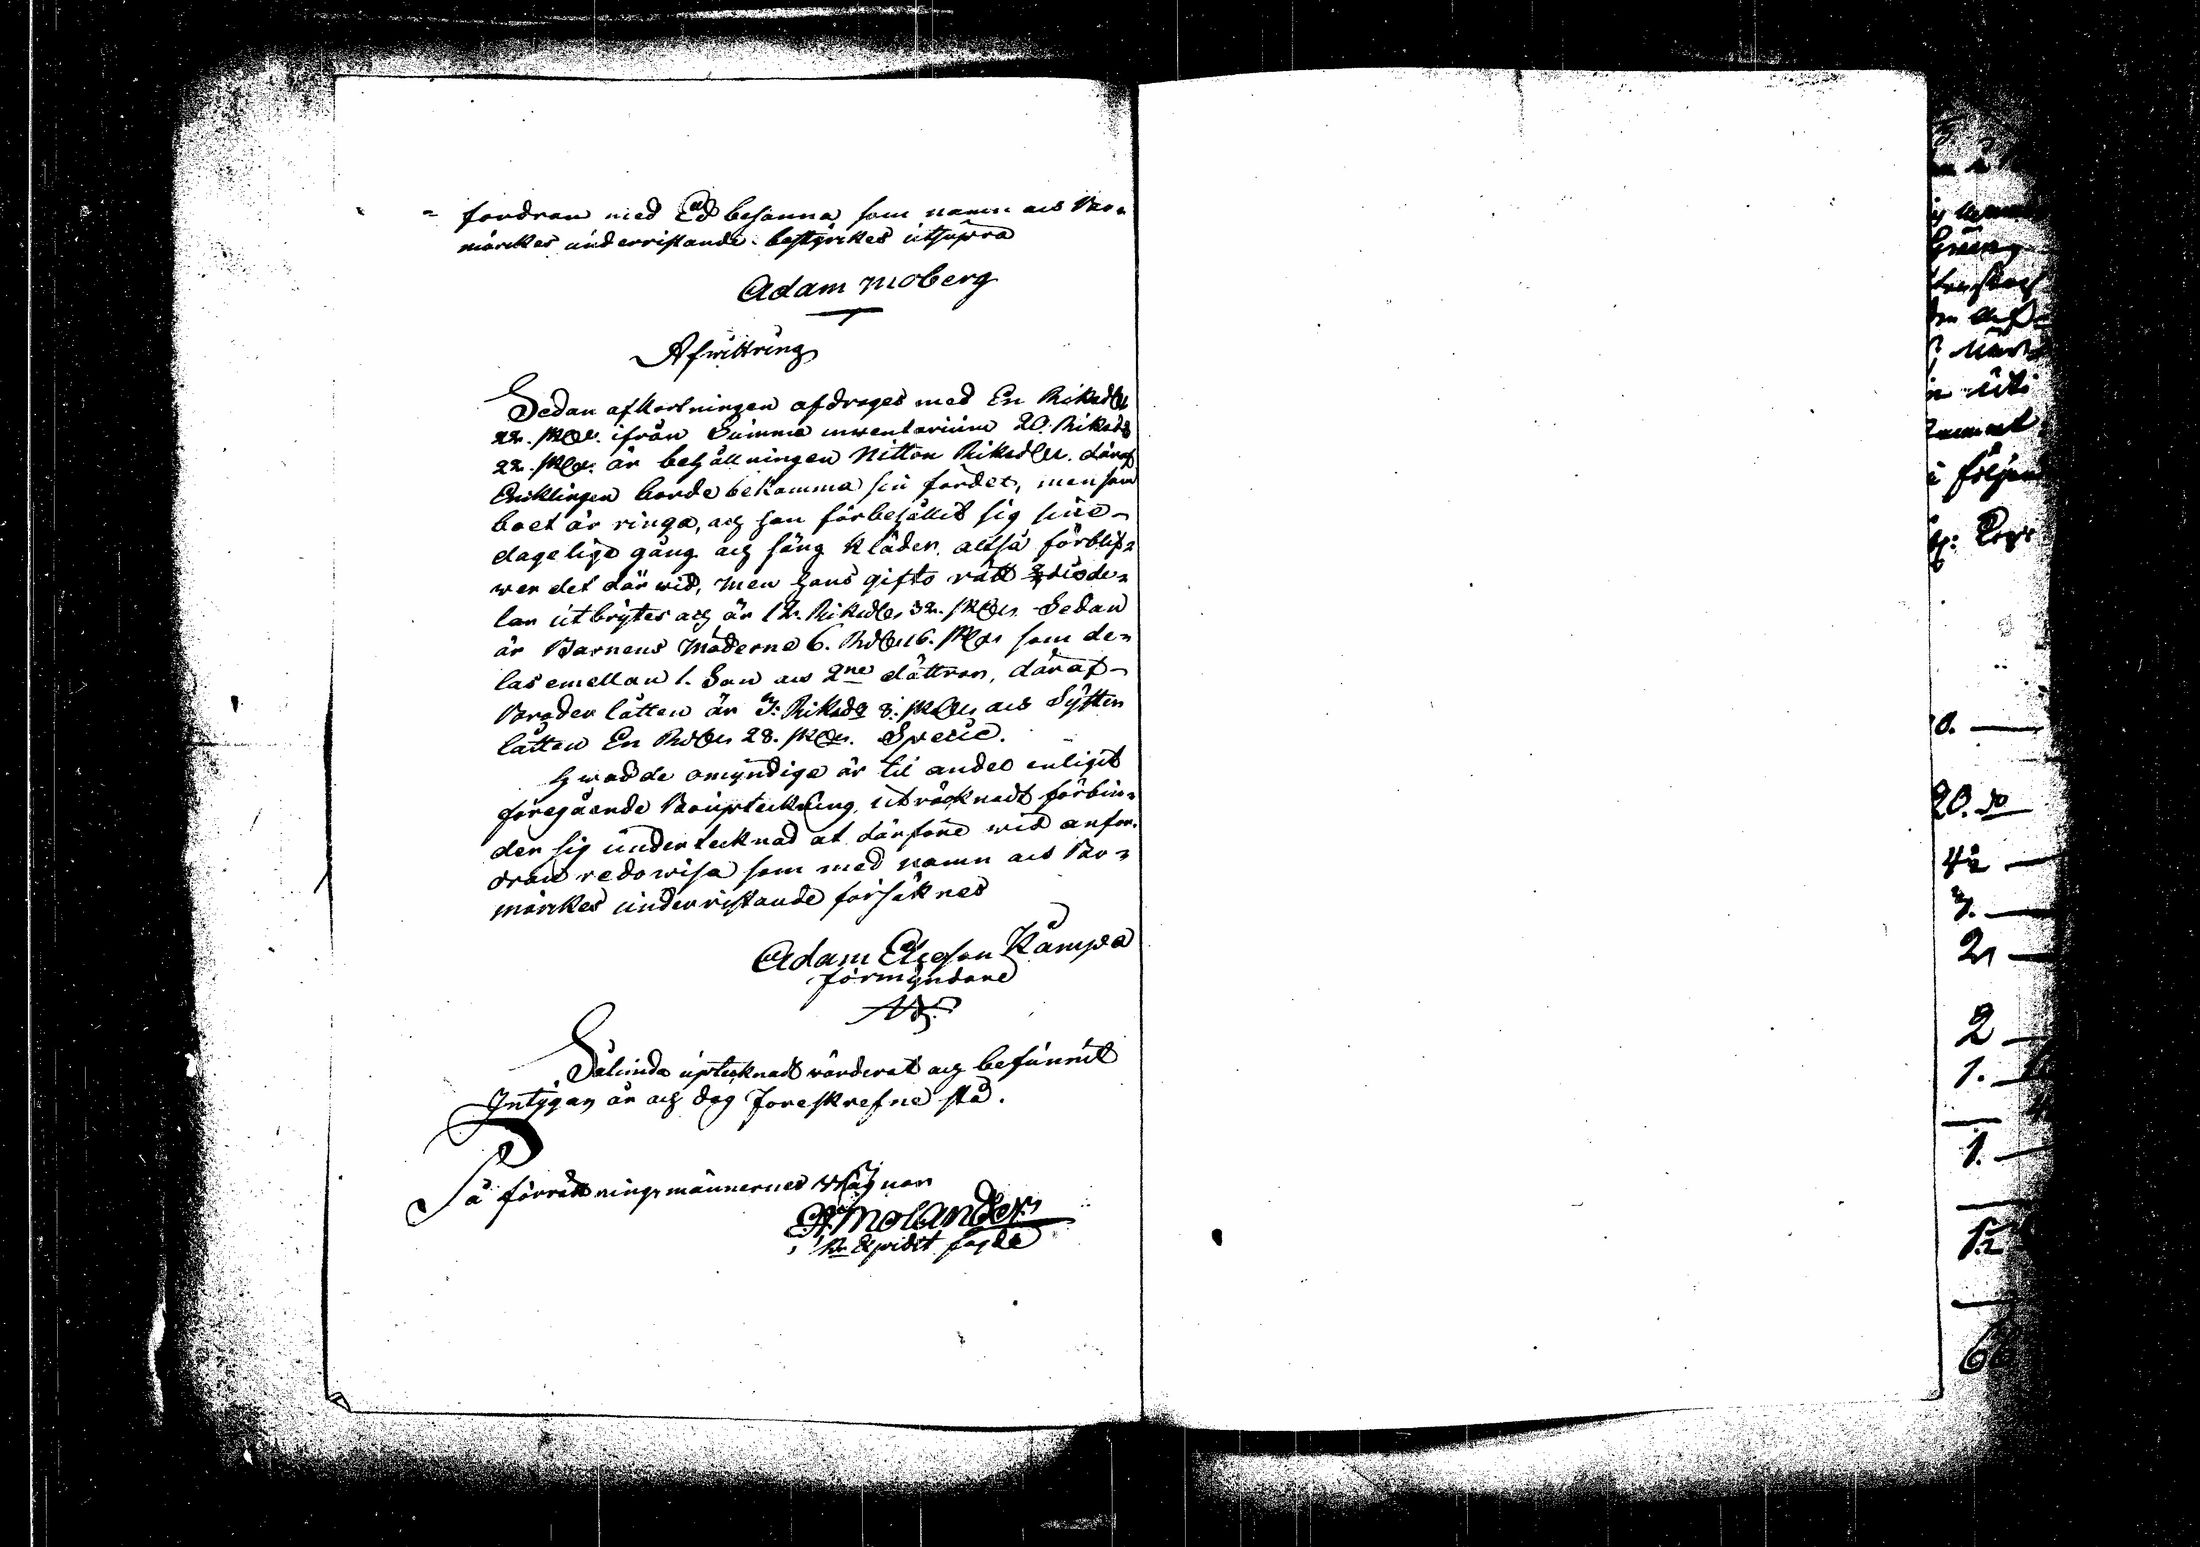 = fordran med Ed besanna som namn ack Bo=
märckes underristande bestyrckes utsupra
Adam Moberg
Afwittring
Sedan afkortningen afdrages med En Riksdlr
22. sklr. ifrån Summa inventarium 20. Riksdr
22. sklr. är behållningen Nitton Riksdlr. däraf
Encklingen borde bekomma sin fördel, men som
boet är ringa, och han förbehållit sig sine
dagelige gång och säng kläder, altså förblif=
wer det där wid, men hans gifto rätt 2/3 dede=
lar utbrytes och är 12. Riksdlr 32. sklr. Sedan
är Barnens Möderne 6. Rdlr 16. sklr som de=
las emellan 1. Son ack 2ne döttrar, däraf
Broder låtten är 3: Riksdr 8: sklr ack Syster
låtten En Rdlr 28. sklr. Specie.
Hwad de omyndige är til andel enligit
föregående Boupteckning uträcknadt förbin=
der sig undertecknad at därföre wid anfor=
dran redowisa som med namn ack Bo=
märckes underristande försäknes
Adam Kämpa
förmyndare
Sålunda uptecknadt värderat och befunnit
Intygar år och dag föreskrefne stå.
På förrättningsmännernes wägnar
Molander